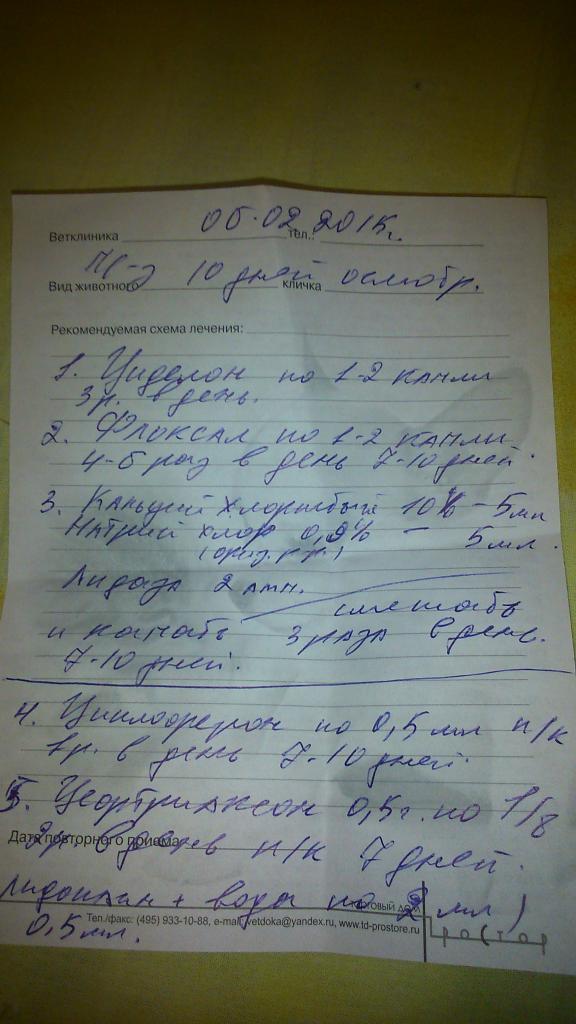 Ветклиника 06.02.2015г. тел.:
Вид животного 10 дней кличка осмотр.
Рекомендуемая схема лечения:
1. Циделон по 1-2 капли
3р. в день.
2. Флоксал по 1-2 капли
4-6 раз в день 7-10 дней.
3. Кальций хлористый 10% - 5мл
Натрий хлор 0,9% - 5мл.
(физ. р-р)
Лидаза 2 амп.
смешать
и капать 3 раза в день.
7-10 дней.
4. Циклоферон по 0,5 мл п/к
1р. в день 7-10 дней.
5. Цефтриаксон 0,5г. по 1/8
Дата повторного приема
2р. в день п/к 7 дней.
Лидокаин + вода по 2 мл)
Торговый дом
Тел./факс: (495) 933-10-88, e-mail: vetdoka@yandex.ru, www.td-prostore.ru
0,5 мл.
Простор